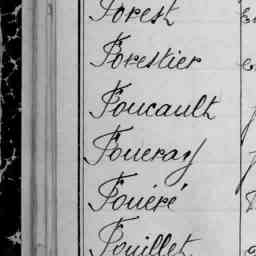 Forest
Forestier
Foucault
Foueray
Fouéré
Fouillet